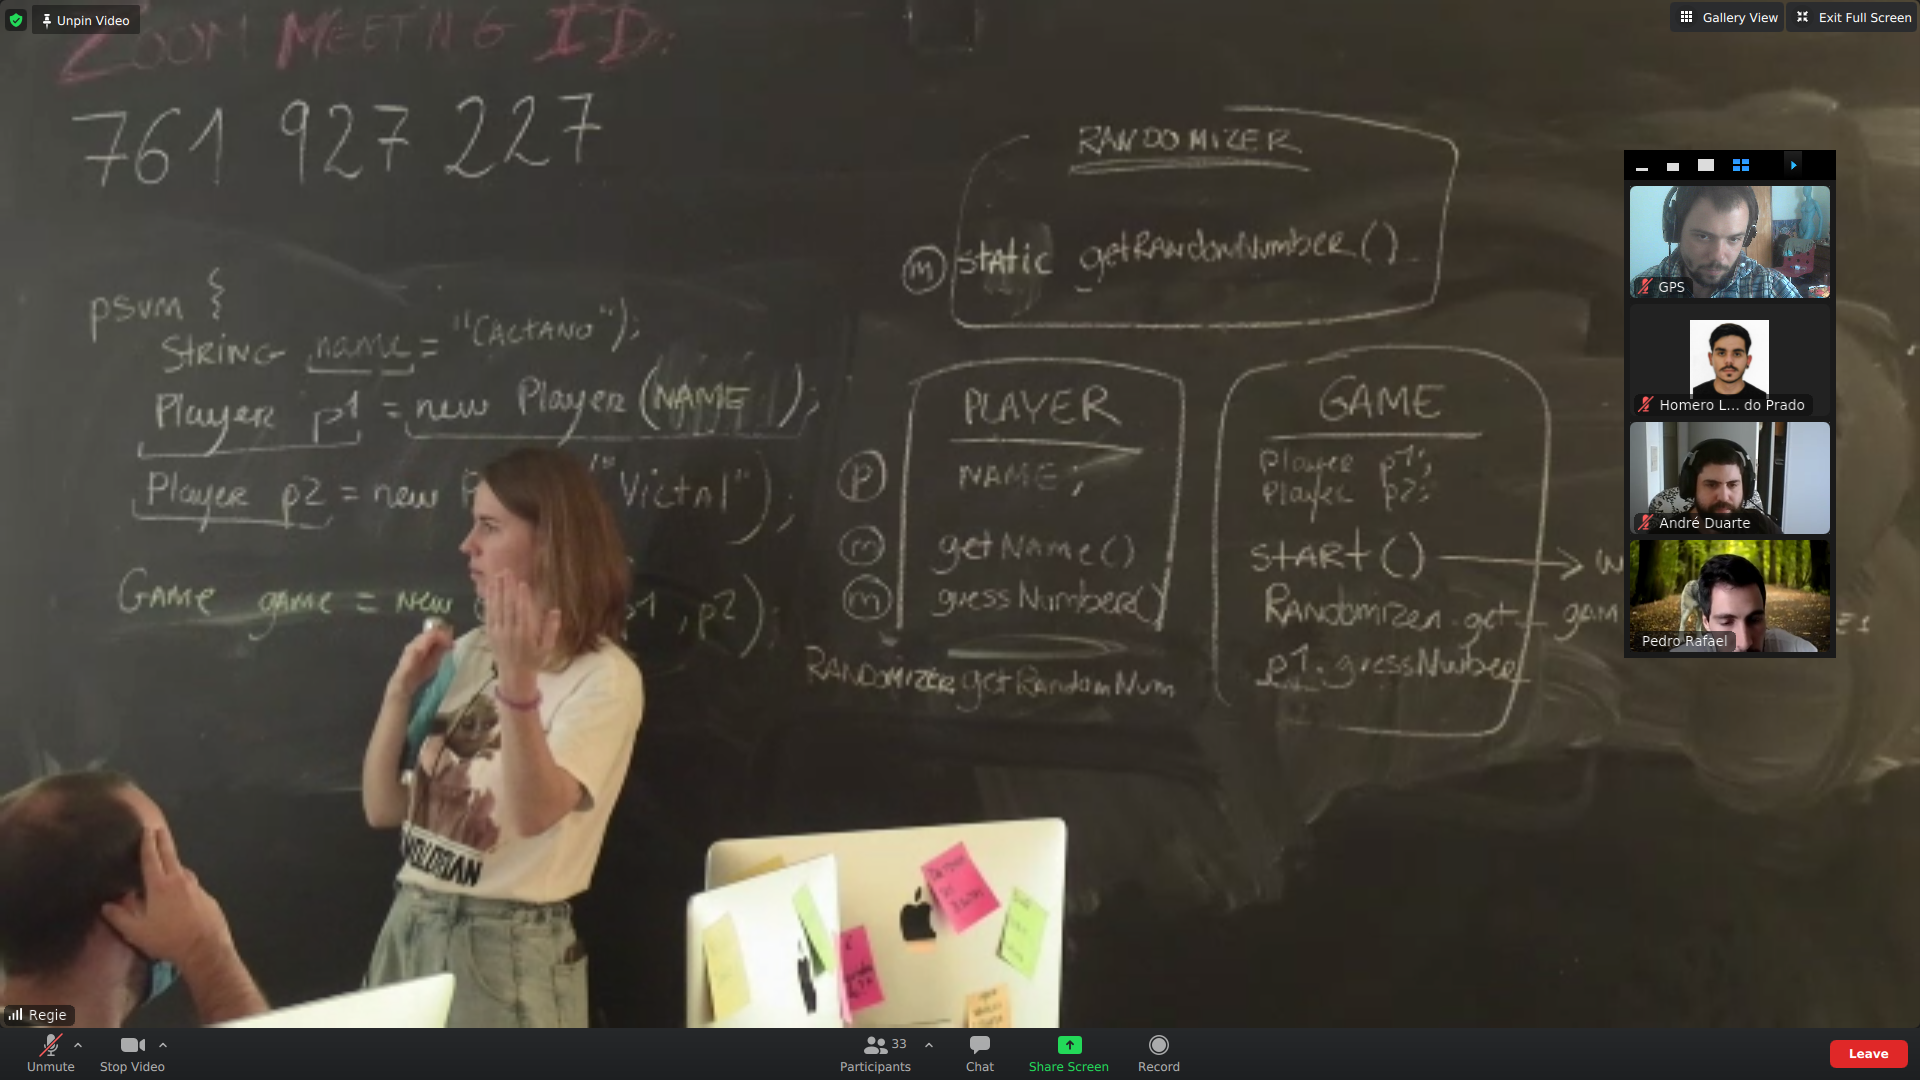 Unpin Video
Gallery View
Exit Full Screen
ZOOM MEETING ID:
761 927 227
psvm {
STRING name = "CAETANO");
Player p1 = new Player (NAME);
Player p2 = new "Victal");
GAME game = new p1, p2);
RANDOMIZER
m static getRandomNumber()
PLAYER
p NAME;
m getName()
m guessNumber()
RANDOMIZER.getRandomNum
GAME
Player p1;
Player p2;
START() →
RANDOMIZER.get
p1.guessNumber
GPS
Homero L... do Prado
André Duarte
Pedro Rafael
Regie
Unmute
Stop Video
33
Participants
Chat
Share Screen
Record
Leave